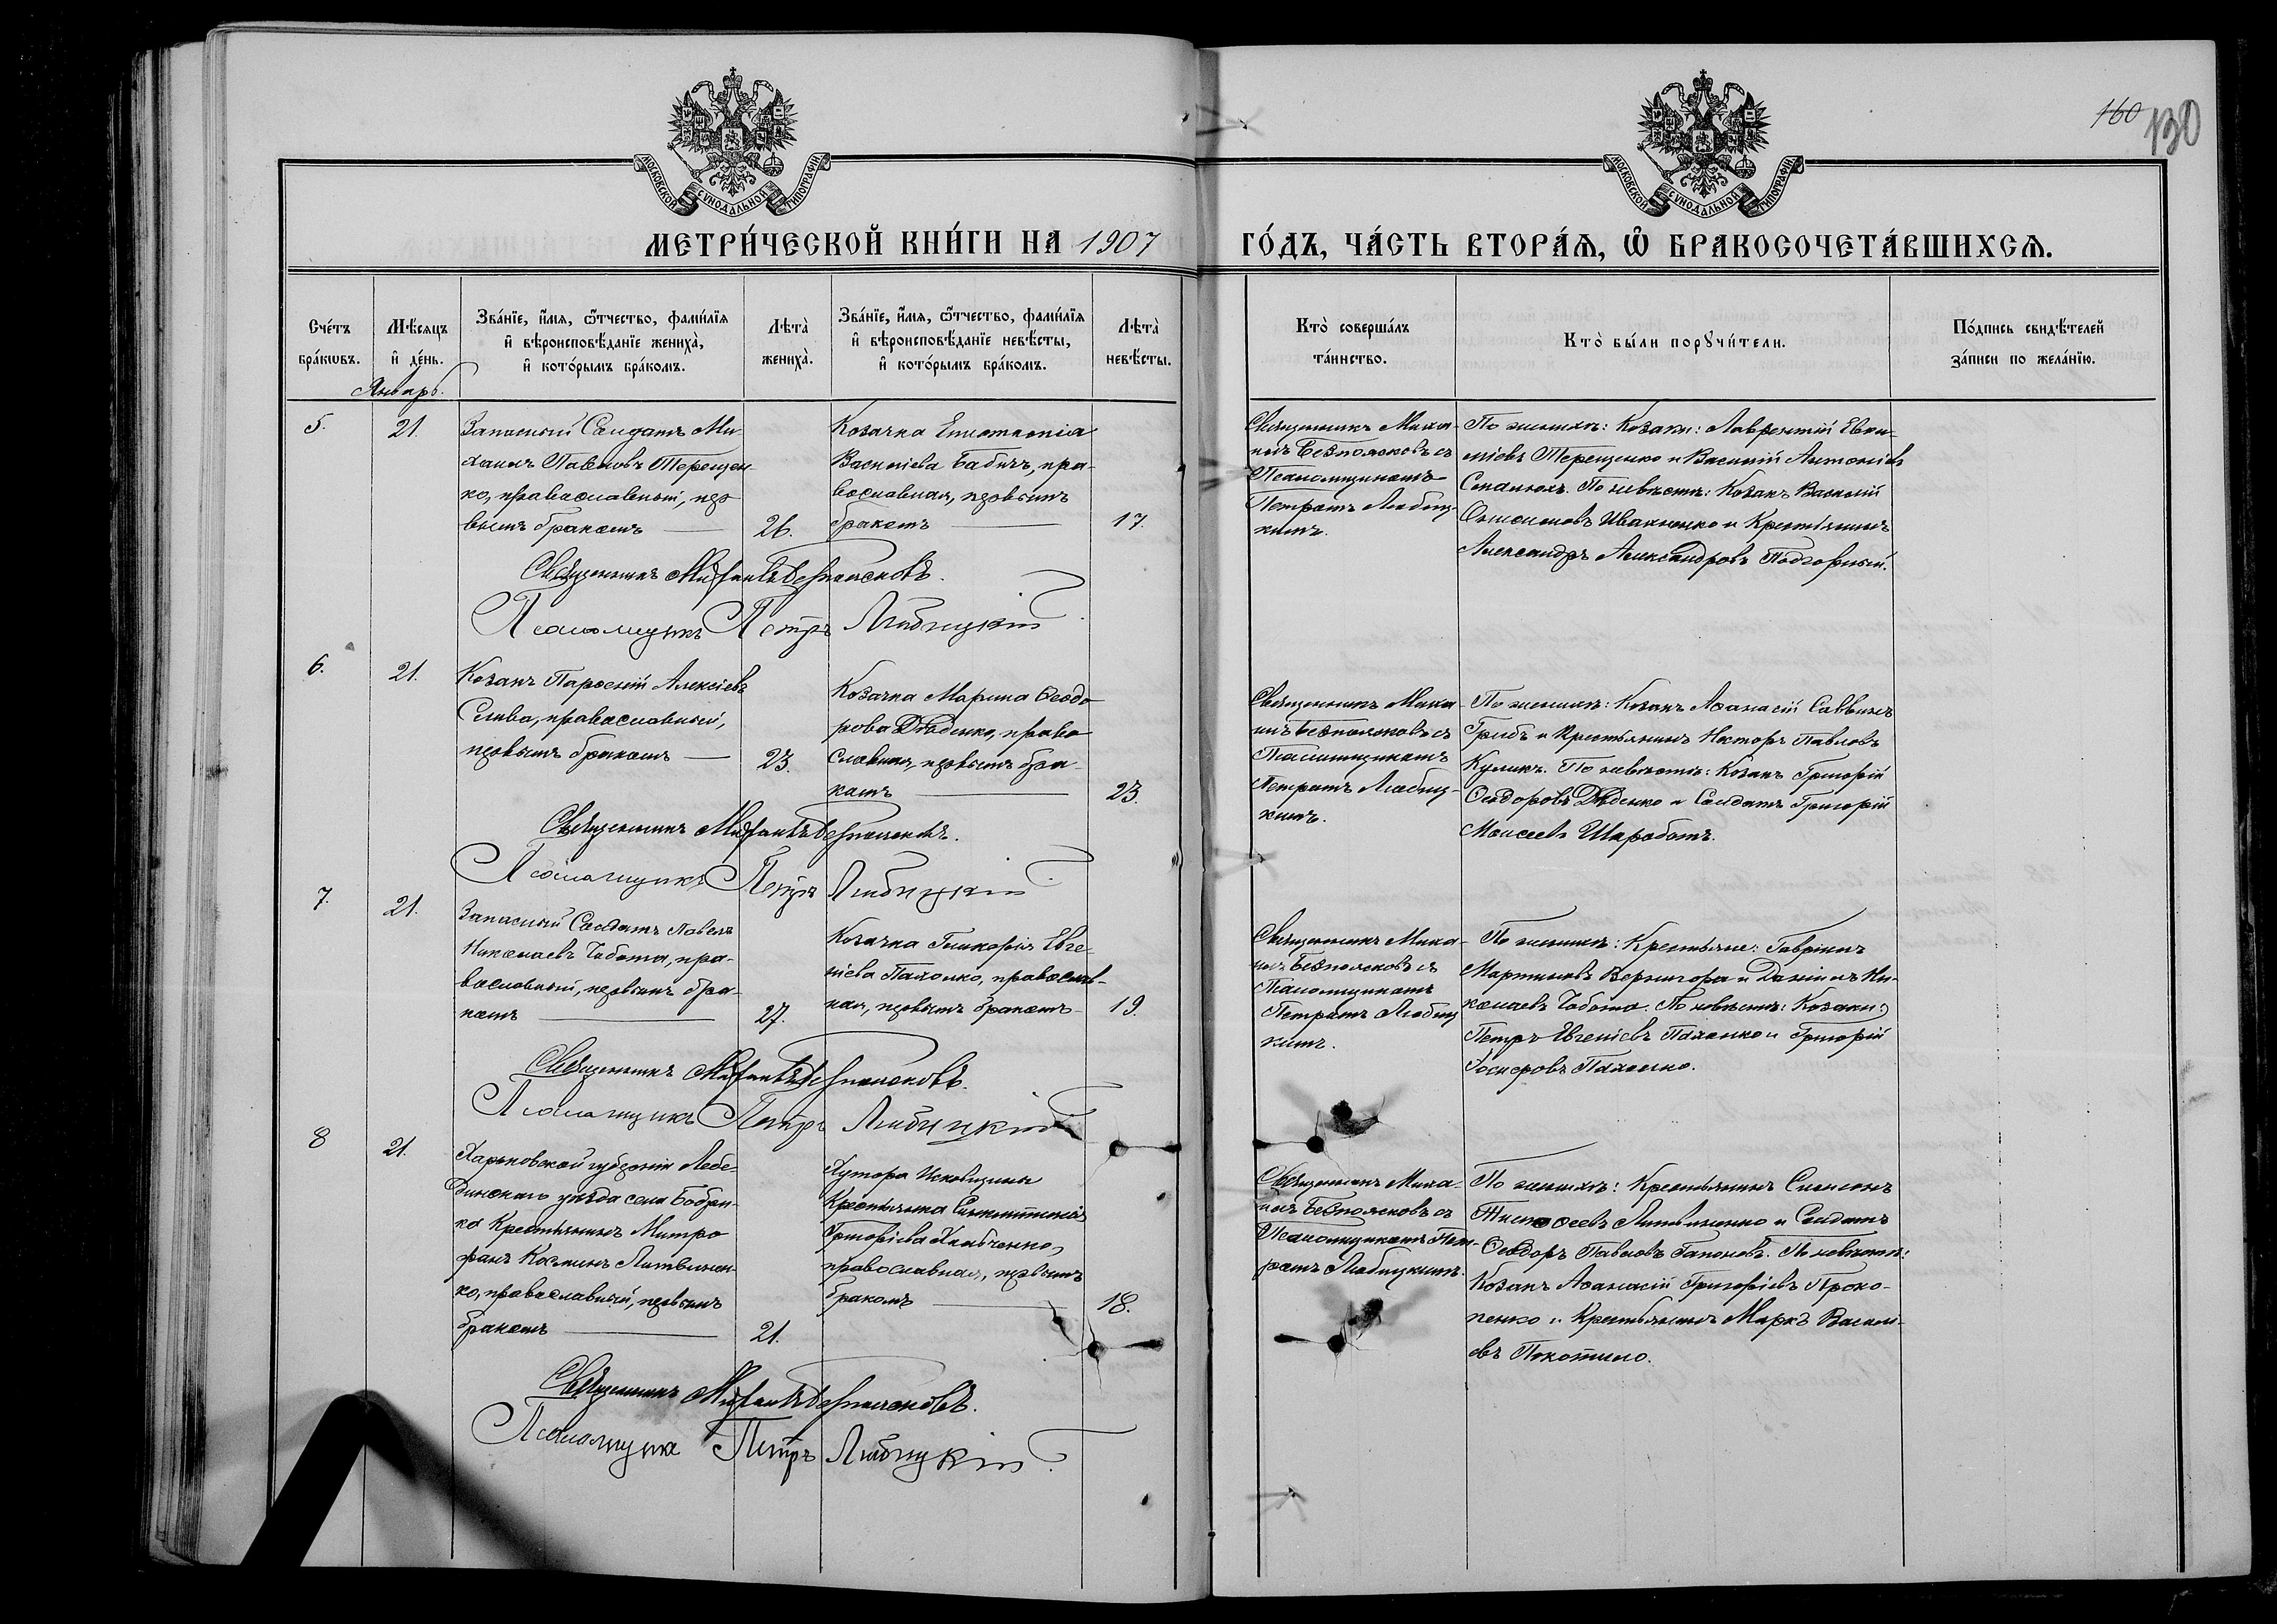 160
130
МОСКОВСКОЙ СѴНОДАЛЬНОЙ ТИПОГРАФІИ
МОСКОВСКОЙ СѴНОДАЛЬНОЙ ТИПОГРАФІИ
МЕТРИ́ЧЕСКОЙ КНИ́ГИ НА 1907
ГО́ДЪ, ЧА́СТЬ ВТОРА́Ѧ, Ѡ҆ БРАКОСОЧЕТА́ВШИХСѦ.
Сче́тъ
бра́кωвъ.
Мѣ́сяцъ
и҆ де́нь.
Зва́нїе, и҆́мя, ѻ҆́тчество, фами́лїя
и҆ вѣроисповѣ́данїе жениха̀,
и҆ кото́рымъ бра́комъ.
Лѣта̀
жениха̀.
Зва́нїе, и҆́мя, ѻ҆́тчество, фами́лїя
и҆ вѣроисповѣ́данїе невѣ́сты,
и҆ кото́рымъ бра́комъ.
Лѣта̀
невѣ́сты.
Кто̀ соверша́лъ
та́инство.
Кто̀ бы́ли порꙋчи́тели.
По́дпись свидѣ́телей
за́писи по жела́нїю.
Январь.
5.
21.
Запасный Солдатъ Ми-
хаилъ Павловъ Терещен-
ко, православный, пер-
вымъ бракомъ
26.
Козачка
Васильева Бабичъ, пра-
вославная, первымъ
бракомъ
17.
Священникъ Миха-
илъ Безполсковъ съ
Псаломщикомъ
Петромъ Любиц-
кимъ.
По женихѣ: Козаки: Лаврентій Евѳи-
міевъ Терещенко и Василій Антоніевъ
По невѣстѣ: Козакъ Василій
Иваненко и Крестьянинъ
Александръ Александровъ Подгорный.
Священникъ Михаилъ Безполсковъ.
Псаломщикъ Петръ Любицкій
6.
21.
Козакъ Парѳеній Алексіевъ
Слива, православный,
первымъ бракомъ
23.
Козачка Марина Ѳеодо-
рова Дѣденко, право-
славная, первымъ бра-
комъ
23.
Священникъ Миха-
илъ Безполсковъ съ
Псаломщикомъ
Петромъ Любиц-
кимъ.
По женихѣ: Козакъ Аѳанасій Саввинъ
Грибъ и Крестьянинъ Несторъ Павловъ
Куликъ. По невѣстѣ: Козакъ Григорій
Ѳеодоровъ Дѣденко и Солдатъ Григорій
Моисеевъ Шароботъ.
Священникъ Михаилъ Безполсковъ.
Псаломщикъ Петръ Любицкій
7.
21.
Запасный Солдатъ Павелъ
Николаевъ Чобота, пра-
вославный, первымъ бра-
комъ
27.
Козачка Гликерія Евге-
ніева Пахолко, православ-
ная, первымъ бракомъ
19.
Священникъ Миха-
илъ Безполсковъ съ
Псаломщикомъ
Петромъ Любиц-
кимъ.
По женихѣ: Крестьяне: Гавріилъ
Мартиновъ Вернигора и Даніилъ Ни-
колаевъ Чобота. По невѣстѣ: Козаки:
Петръ Евгеніевъ Пахолко и Григорій
Пахолко.
Священникъ Михаилъ Безполсковъ.
Псаломщикъ Петръ Любицкій
8
21.
Харьковской губерніи Лебе-
динскаго уѣзда села Бобри-
ка Крестьянинъ Митро-
фанъ Косминъ Литвинен-
ко, православный, первымъ
бракомъ
21.
Хутора Исковщины
Крестьянка Синклитикія
Григоріева Хлибченко,
православная, первымъ
бракомъ
18.
Священникъ Миха-
илъ Безполсковъ съ
Псаломщикомъ Пет-
ромъ Любицкимъ.
По женихѣ: Крестьянинъ Симеонъ
Тимоѳеевъ Литвиненко и Солдатъ
Ѳеодоръ Павловъ Гапоновъ. По невѣстѣ:
Козакъ Аѳанасій Григоріевъ Проко-
пенко и Крестьянинъ Маркъ Василі-
евъ Покотило.
Священникъ Михаилъ Безполсковъ.
Псаломщикъ Петръ Любицкій.